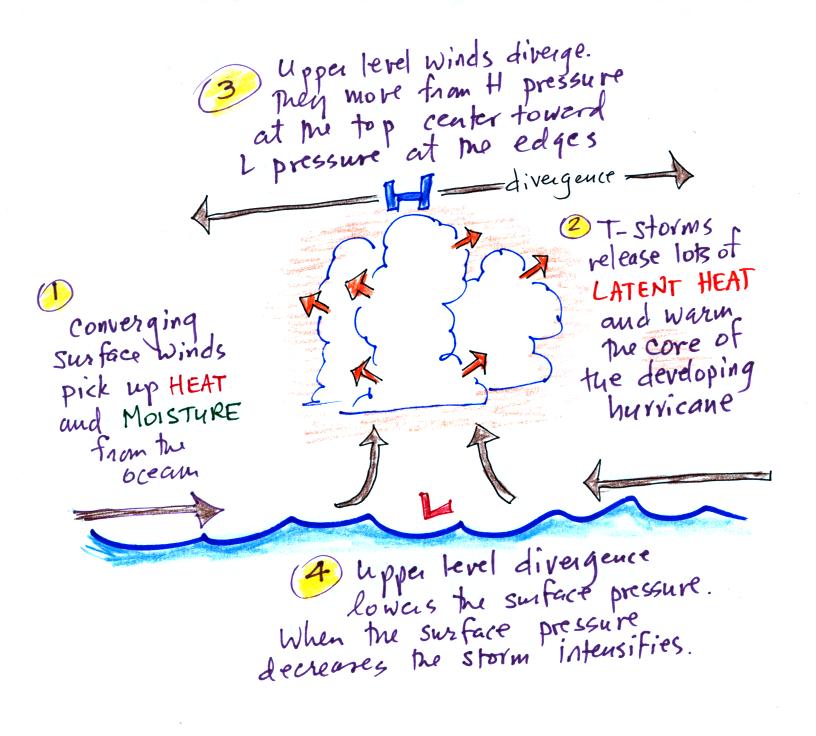 3
Upper level winds diverge.
They move from H pressure
at the top center toward
L pressure at the edges
H
divergence
1
Converging
surface winds
pick up HEAT
and MOISTURE
from the
ocean
2
T-storms
release lots of
LATENT HEAT
and warm
the core of
the developing
hurricane
L
4
Upper level divergence
lowers the surface pressure.
When the surface pressure
decreases the storm intensifies.